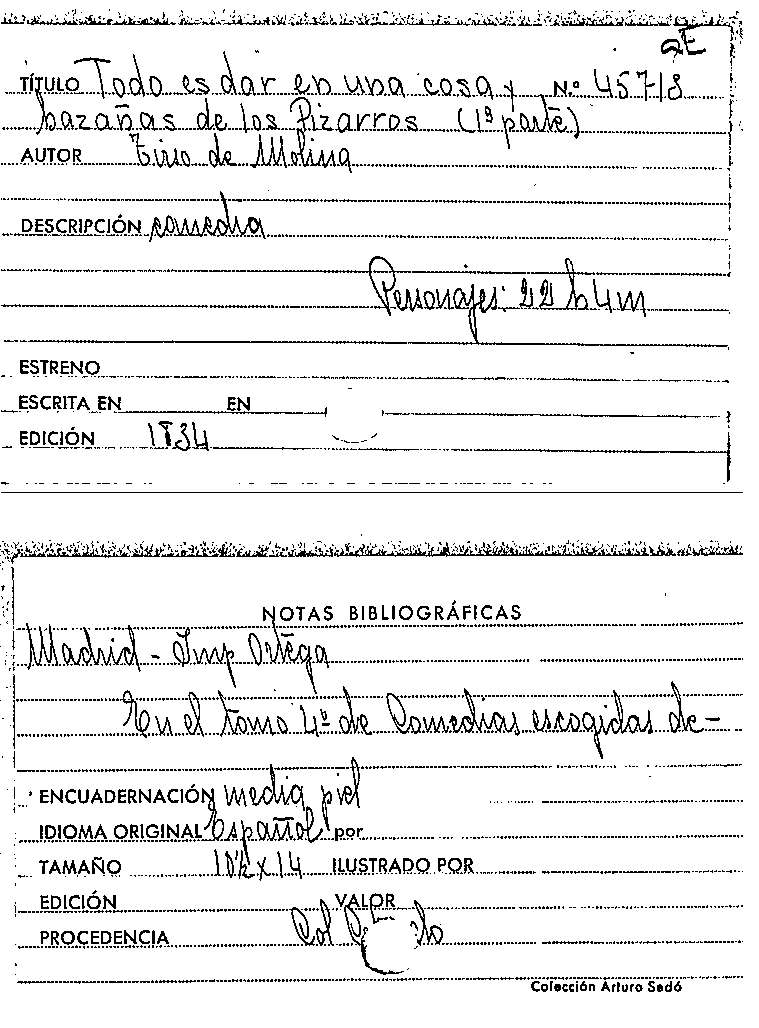 TÍTULO Todo es dar en una cosa y N.º 457-18
hazañas de los Pizarros (1ª parte)
AUTOR Tirso de Molina
DESCRIPCIÓN comedia
Personajes: 22 h 4 m
ESTRENO
ESCRITA EN EN
EDICIÓN 1834
NOTAS BIBLIOGRÁFICAS
Madrid - Imp Ortega
En el tomo 4º de Comedias escogidas de-
ENCUADERNACIÓN media piel
IDIOMA ORIGINAL Español por
TAMAÑO x 14 ILUSTRADO POR
EDICIÓN VALOR
PROCEDENCIA Col
Colección Arturo Sedó